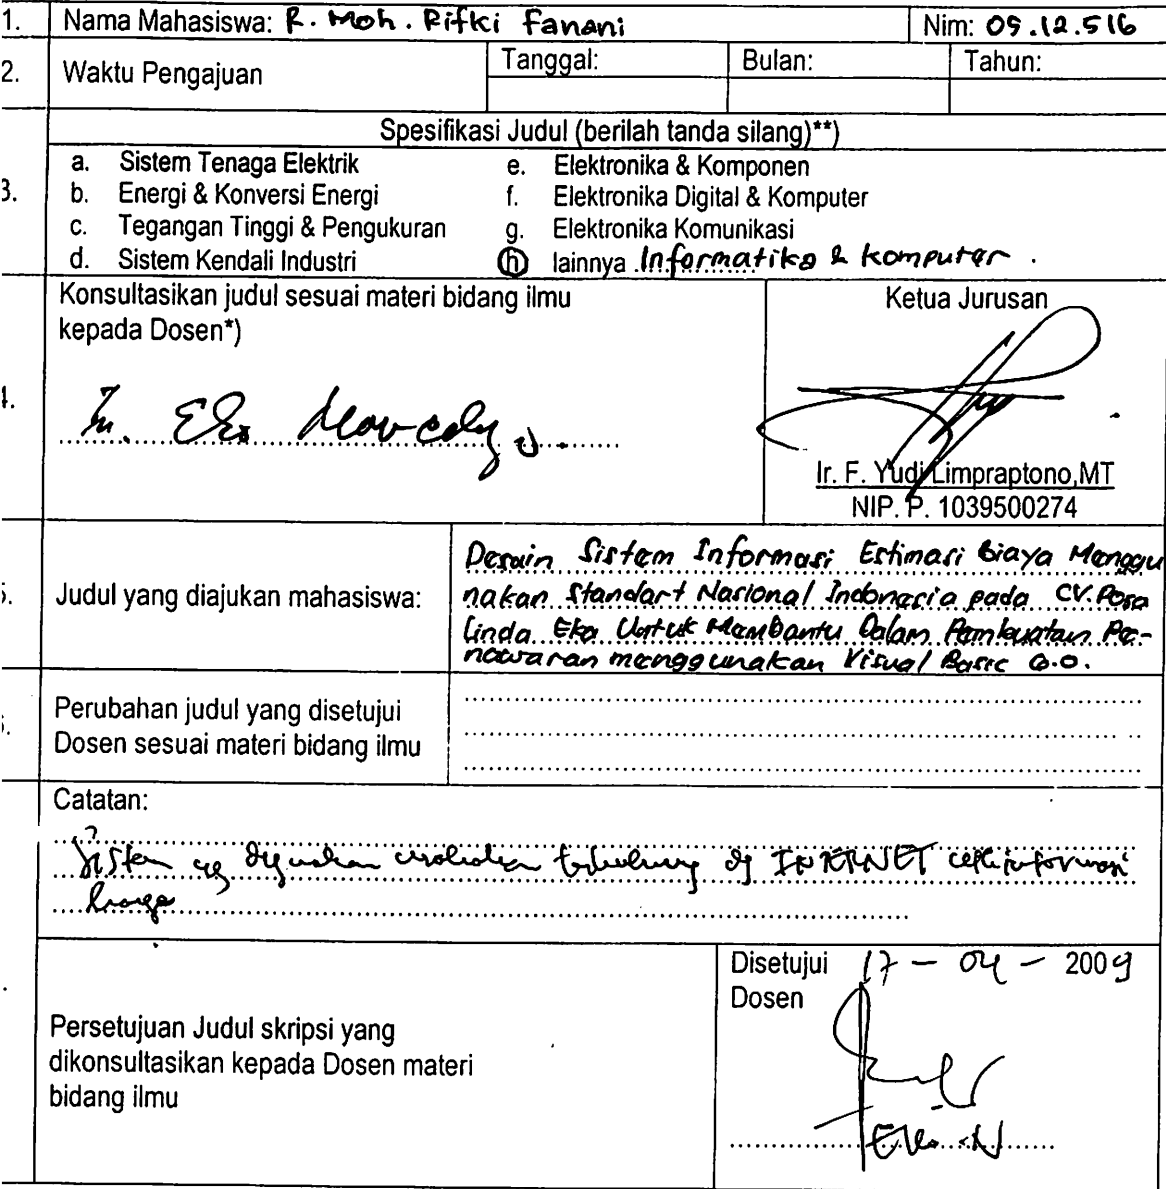 1. Nama Mahasiswa: R. Moh. Rifki Fanani Nim: 05.12.516
2. Waktu Pengajuan Tanggal: Bulan: Tahun:
Spesifikasi Judul (berilah tanda silang)**)
3.
a. Sistem Tenaga Elektrik e. Elektronika & Komponen
b. Energi & Konversi Energi f. Elektronika Digital & Komputer
c. Tegangan Tinggi & Pengukuran g. Elektronika Komunikasi
d. Sistem Kendali Industri h lainnya Informatika & Komputer.
4. Konsultasikan judul sesuai materi bidang ilmu
kepada Dosen*)
Ir. Eko
Ketua Jurusan
Ir. F. Yudi Limpraptono,MT
NIP. P. 1039500274
5. Judul yang diajukan mahasiswa:
Desain Sistem Informasi Estimasi Biaya Menggu
nakan Standart Nasional Indonesia pada CV.Posa
linda Eka Untuk Membantu Dalam Pembuatan Pe-
nawaran menggunakan Visual Basic 6.0.
6. Perubahan judul yang disetujui
Dosen sesuai materi bidang ilmu
Catatan:
Sistem yg digunakan terhubung dg INTERNET informasi
harga
Persetujuan Judul skripsi yang
dikonsultasikan kepada Dosen materi
bidang ilmu
Disetujui 17 - 04 - 2009
Dosen
Eko N